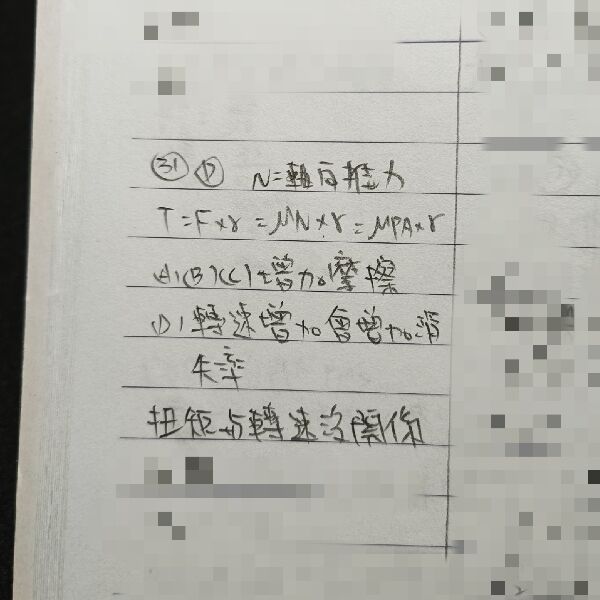 ㉛ Ⓓ N=軸向推力
T=F×r=μN×r=μPA×r
(A)(B)(C)增加摩擦
(D)轉速增加會增加消
失率
扭矩与轉速沒關係